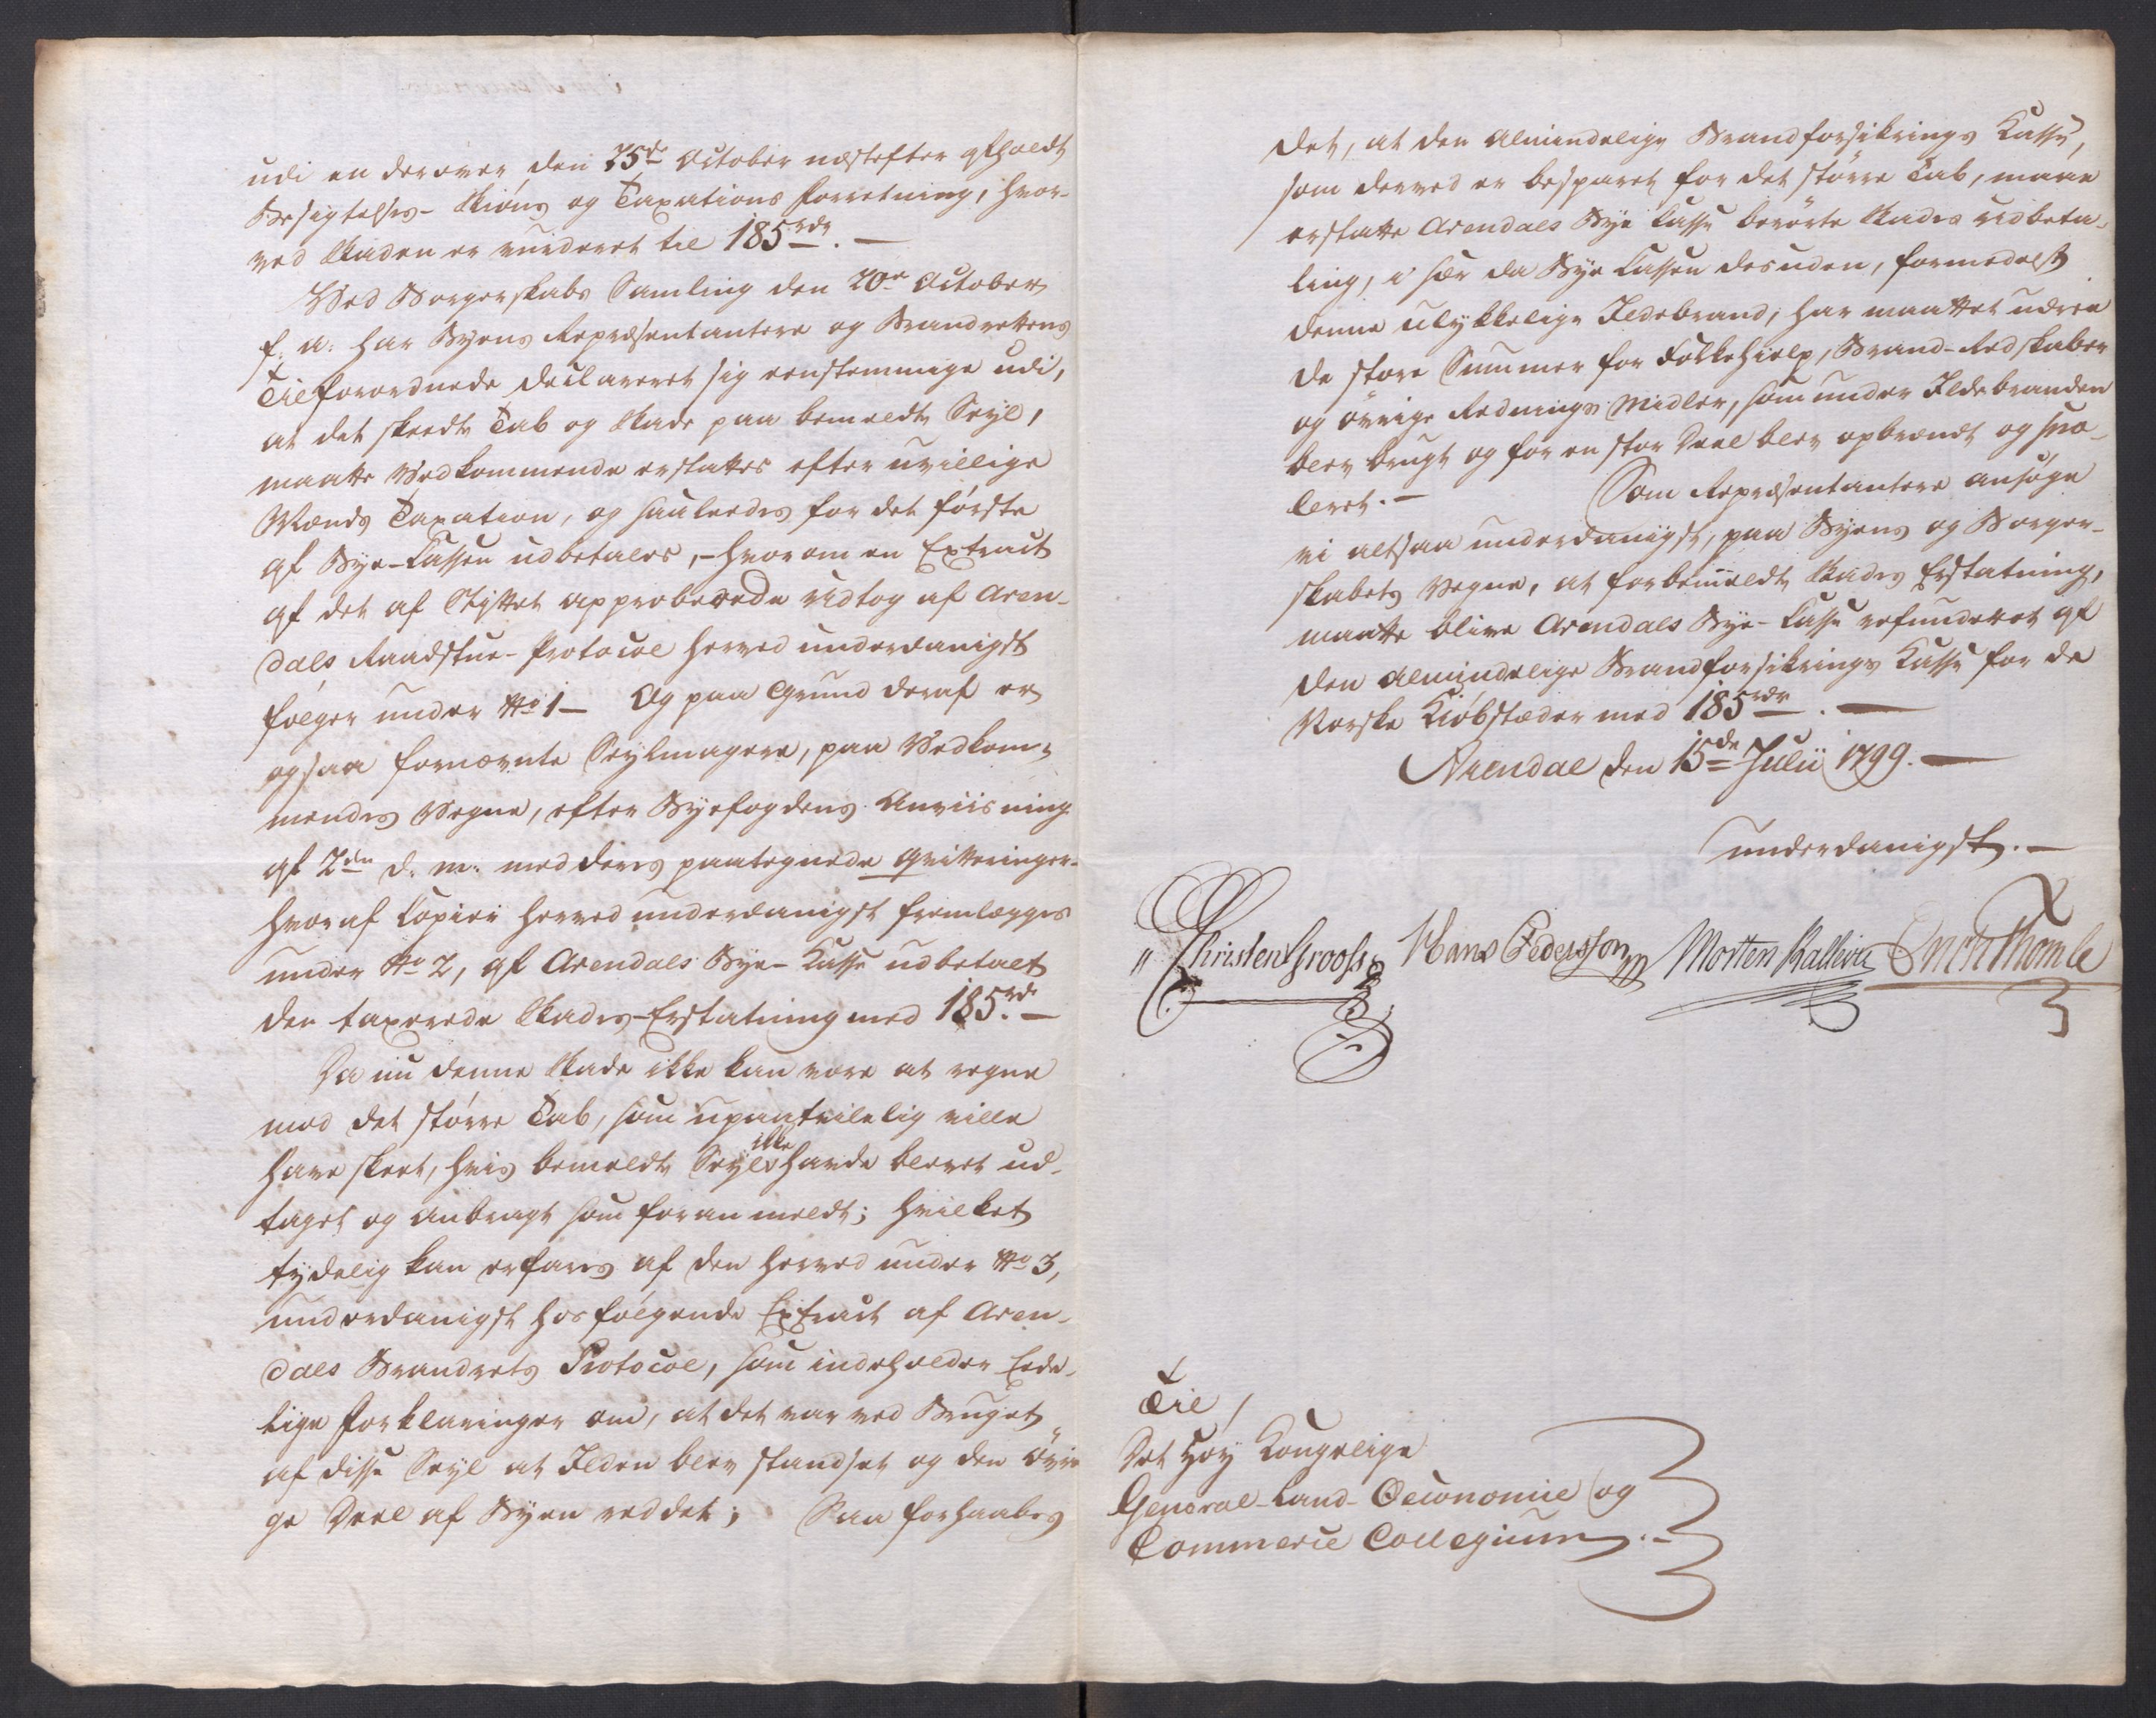 udi en derover, den 25de October næstefter afholdt
Besigtelses- Skiøns og Taxations Forretning, hvor-
ved Skaden er vurderet til 185 rdr. —
Ved Borgerskabs Samling den 20de October
f. a. har Byens Repræsentantere og Brandrettens
Tilforordnede declareret sig eenstemmige udi,
at det skeedte Tab og Skade paa bemeldte Seyl,
maatte Vedkommende erstattes efter uvillige
Mænds Taxation, og saaledes for det første
af Bye-Cassen udbetales, – hvorom en Extract
af det af Stiftet approberede Udtog af Aren-
dals Raadstue-Protocol herved underdanigst
følger under No 1 – Og paa Grund deraf er
ogsaa fornævnte Seylmagere, paa Vedkom-
mendes Vegne, efter Byefogdens Anviisning
af 2den d. m. med deres paategnede Qvitteringer
hvoraf Copier herved underdanigst fremlægges
under No 2, af Arendals Bye-Kasse udbetalt
den taxerede Skades-Erstatning med 185 rd. —
Da nu denne Skade ikke kan være at regne
mod det større Tab, som upaatvilelig ville
have skeet, hvis bemeldte Seyl ikke havde blevet ud-
taget og anbragt som foranmeldt; hvilket
tydelig kan erfares af den herved under No 3,
underdanigst hosfølgende Extract af Aren-
dals Brandrets Protocol, som indeholder Eede-
lige Forklaringer om, at det var ved Bruget
af disse Seyl at Ilden blev standset og den øvri-
ge Deel af Byen reddet; Saa forhaabes
det, at den almindelige Brandforsikrings Kasse,
som derved er besparet for det større Tab, maae
erstatte Arendals Bye Casse berørte Skades Udbeta-
ling, i sær da Bye Cassen desuden, formedelst
denne ulykkelige Ildebrand, har maattet udrede
de store Summer for Folkehielp, Brand-Redskaber
og øvrige Rednings Midler, som under Ildebranden
blev brugt og for en stor Deel blev opbrændt og spo-
leret. – Som Repræsentantere ansøge
vi altsaa underdanigst, paa Byens og Borger-
skabets Vegne, at forbemeldte Skades Erstatning,
maatte blive Arendals Bye-Casse refunderet af
den almindelige Brandforsikrings Kasse for de
Norske Kiøbstæder med 185 rdr. —
Arendal den 15de Julii 1799. —
underdanigst. —
Christen Grooss Hans Pedersson Morten Kallevig Even Thomle
Til
Det Høy Kongelige
General-Land-Oeconomie og
Commerce Collegium. –